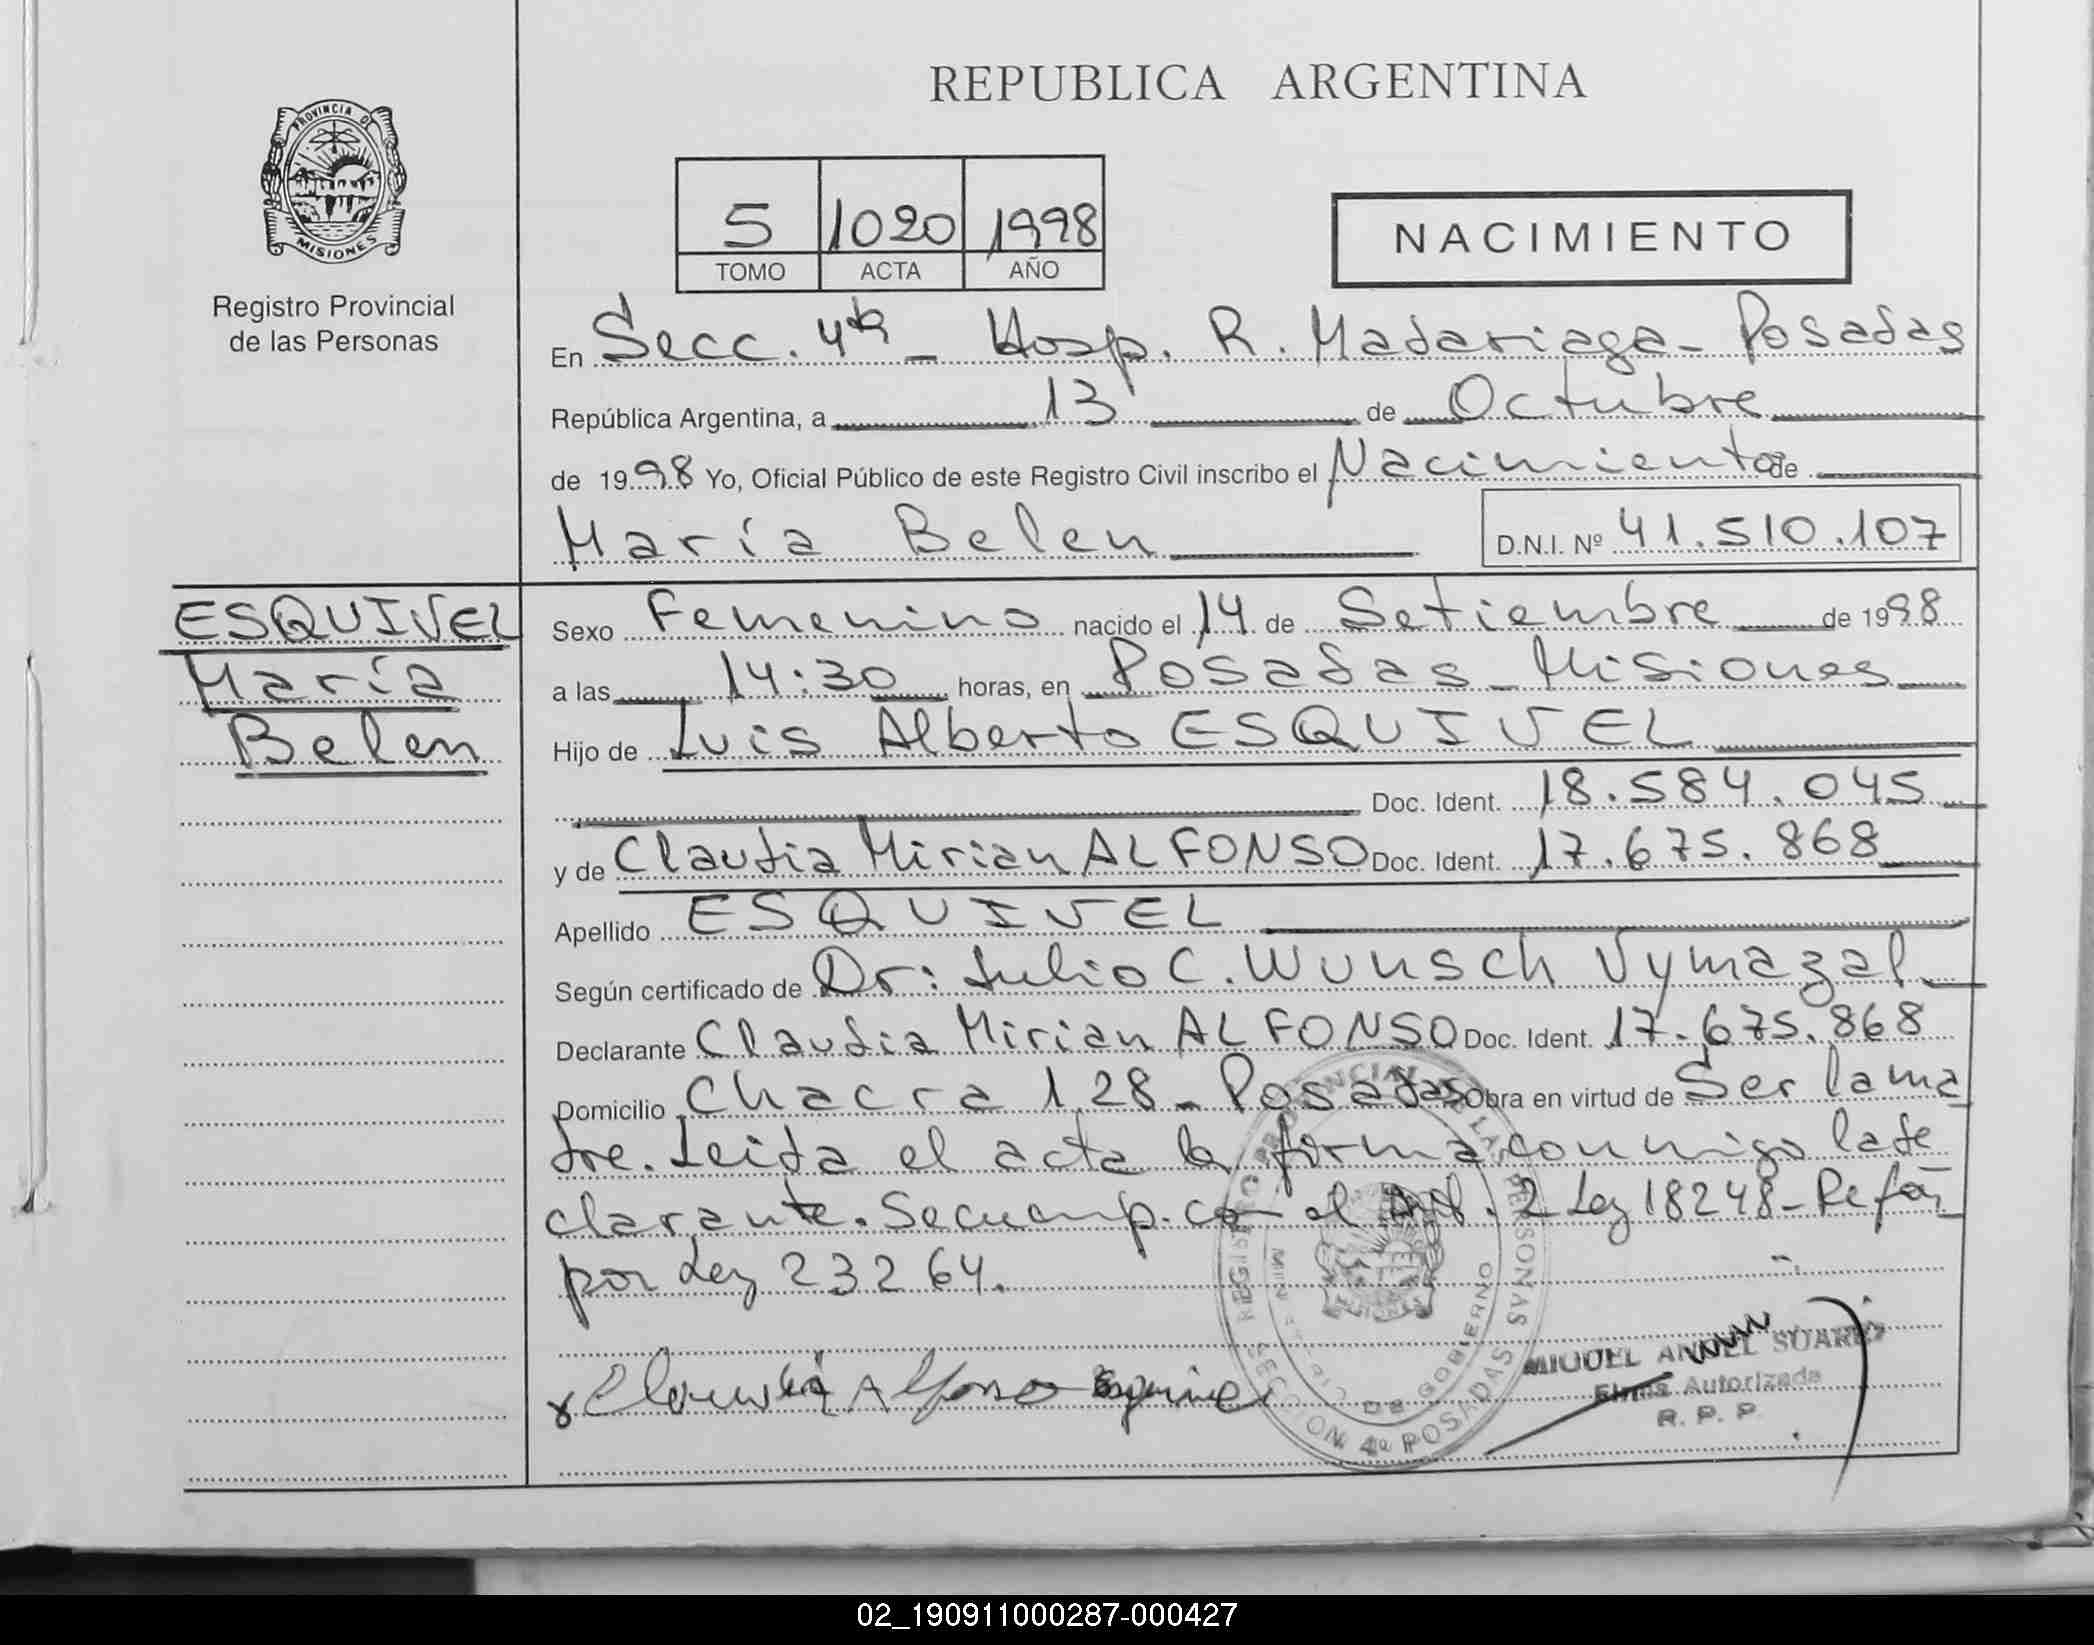 REPUBLICA ARGENTINA
PROVINCIA DE
MISIONES
Registro Provincial
de las Personas
5 1020 1998
TOMO ACTA AÑO
NACIMIENTO
En Secc. 4ta - Hosp. R. Madariaga - Posadas
República Argentina, a 13 de Octubre
de 1998 Yo, Oficial Público de este Registro Civil inscribo el Nacimiento de
María Belen D.N.I. Nº 41.510.107
ESQUIVEL
María
Belen
Sexo Femenino nacido el 14 de Setiembre de 1998
a las 14:30 horas, en Posadas - Misiones
Hijo de Luis Alberto ESQUIVEL
Doc. Ident. 18.584.045
y de Claudia Mirian ALFONSO Doc. Ident. 17.675.868
Apellido ESQUIVEL
Según certificado de Dr: Julio C. Wunsch Vymazal
Declarante Claudia Mirian ALFONSO Doc. Ident. 17.675.868
Domicilio Chacra 128 - Posadas Obra en virtud de Ser la ma
dre. Leida el acta la firma conmigo la de
clarante. Se cump. con el Art. 2 Ley 18248 - Refor
por Ley 23264.
Claudia Alfonso Esquivel
REGISTRO PROVINCIAL DE LAS PERSONAS
DE GOBIERNO
SECCION 4a POSADAS
MIGUEL ANGEL SUAREZ
Firma Autorizada
R. P. P.
02_190911000287-000427